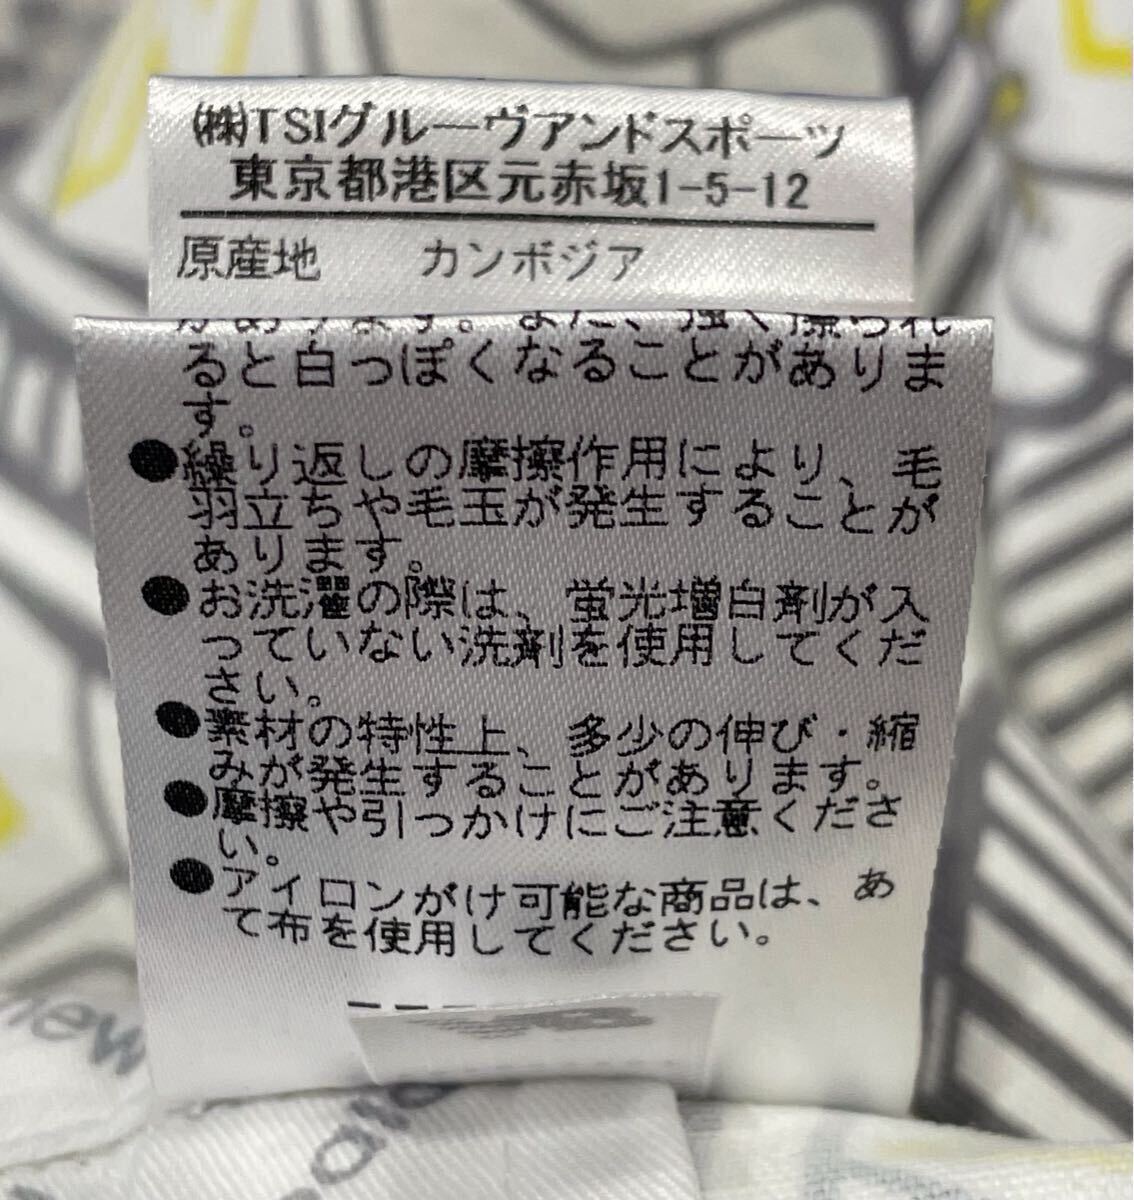 ㈱TSIグルーヴアンドスポーツ
東京都港区元赤坂1-5-12
原産地 カンボジア
があります。また、強く擦られ
ると白っぽくなることがありま
す。
●繰り返しの摩擦作用により、毛
羽立ちや毛玉が発生することが
あります。
●お洗濯の際は、蛍光増白剤が入
っていない洗剤を使用してくだ
さい。
●素材の特性上、多少の伸び・縮
みが発生することがあります。
●摩擦や引っかけにご注意くださ
い。
●アイロンがけ可能な商品は、あ
て布を使用してください。
new